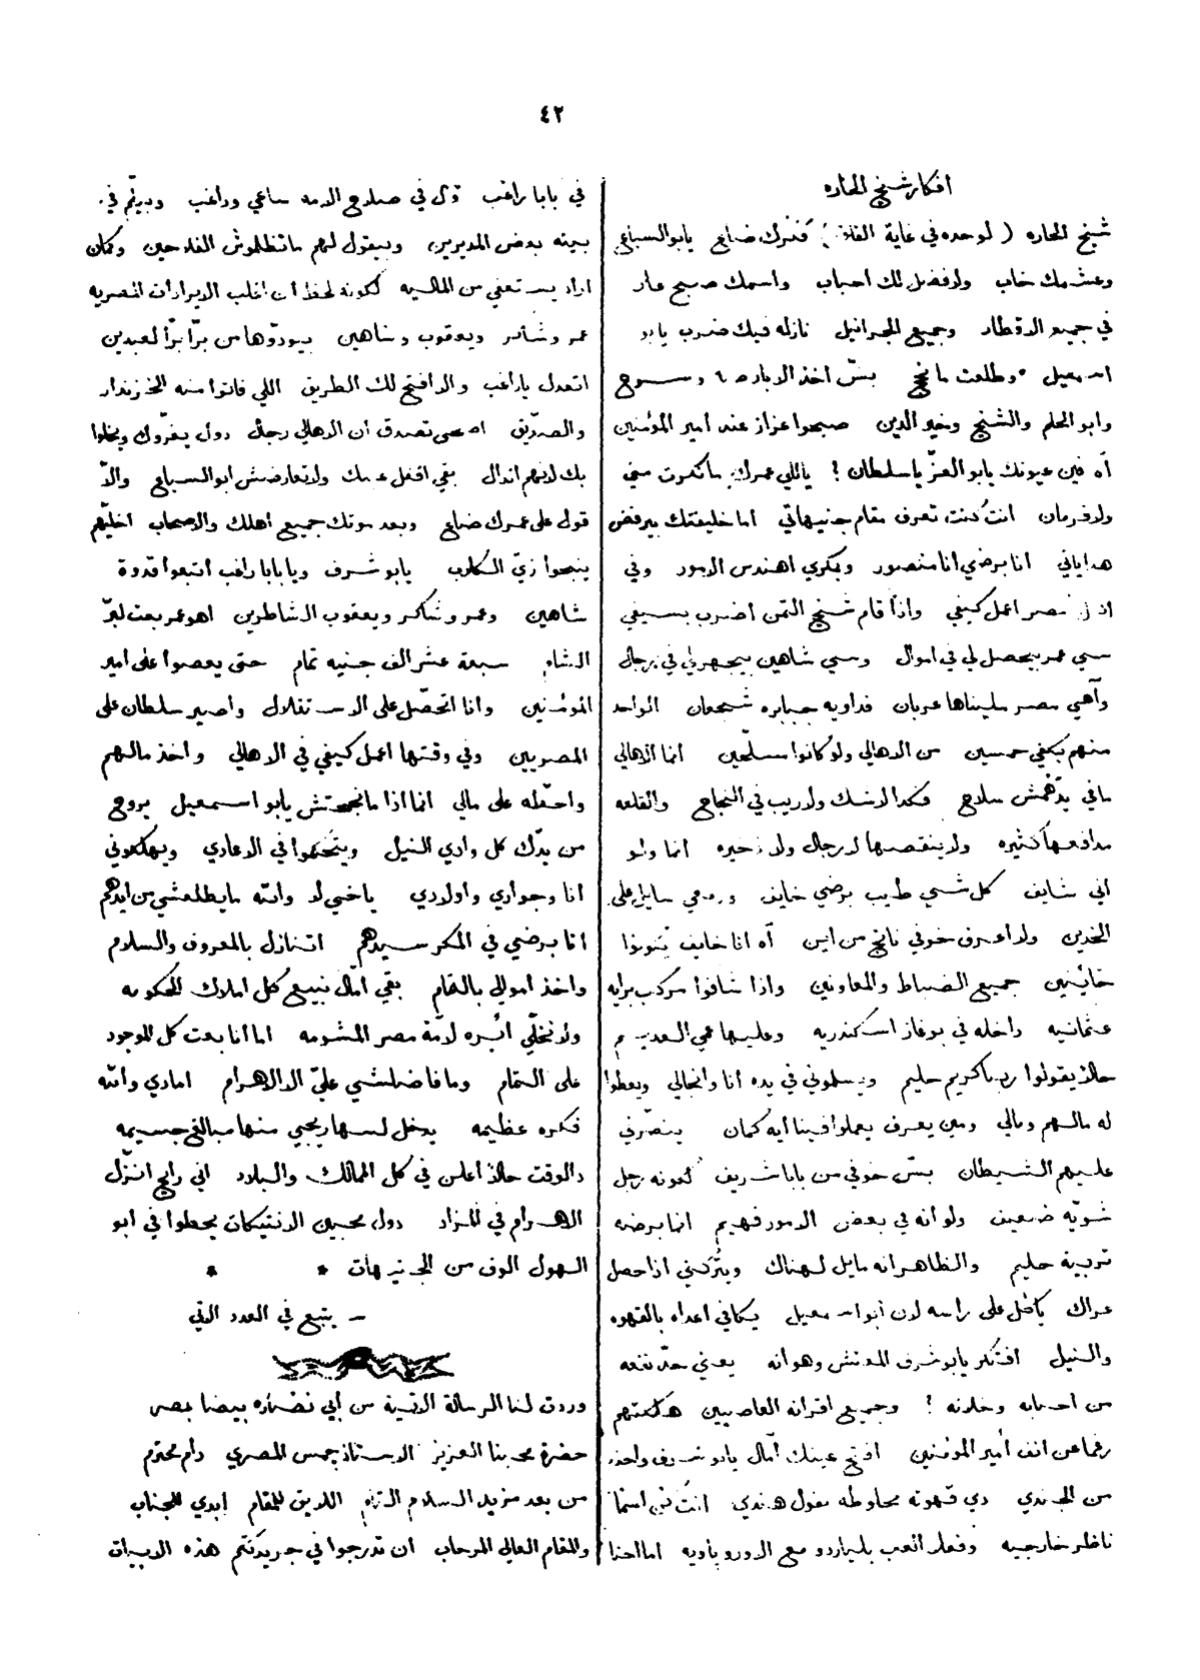 ٤٢
افكار شيخ الحاره
شيخ الحاره ( لوحده في غاية القلق ) فنزك ضايع يابو السباع
وعشمك خاب ولا فضل لك احباب واسمك صبح عار
في جميع الاقطار وجميع الجرانيل نازله فيك ضرب يابو
اسمعيل وطلعت مانح بسّ اخذ الابار
وابو الحلم والشيخ وخير الدين صبحوا عزاز عند امير المؤمنين
آه فين عيونك يابو العزّ يا سلطان ! ياللي عمرك ما نكرت مني
ولا فرمان انت كنت تعرف مقام جنيهاتي اما خليفتك بيرفض
هداياتي انا برضي انا منصور وبمكري اهندس الامور وفي
مصر اعمل كيفي واذا قام شيخ التمن اضرب بسيفي
سي عمر بيحصل لي في اموال وسي شاهين بيجهز لي في رجال
وآهي مصر مليناها عربان فداويه جبابره شجعان الواحد
منهم يكفي خمسين من الاهالي ولو كانوا مسلّحين انما الاهالي
ما في يدّهمش سلاح فكدا لا شك ولا ريب في النجاح والقلعه
مدافعها كثيره ولا ينقصها لا رجال ولا ذخيره انما ولو
اني شايف كل شي طيب برضي خايف ودمعي سايل على
الخدين ولا اعرف خوفي ناتج من اين آه انا خايف يكونوا
خائنين جميع الضباط والمعاونين واذا شافوا مركب برايه
عثمانيه داخله في بوغاز اسكندريه وعليها عمي العديم
حالا يقولوا يا كريم حليم ويسلموني في يده انا وانجالي ويعطوا
له مالهم ومالي ومين يعرف يعملوا فينا ايه كمان ينصرني
عليهم الشيطان بسّ خوفي من بابا شريف لكونه رجل
شويّه ضعيف ولو انه في بعض الامور فهيم انما برضه
تربية حليم والظاهر انه مايل لهناك ويتركني اذا حصل
عراك ياكل على راسه لان ابو اسمعيل يكافي اعداه بالقهوه
والنيل افتكر يابو شرف المفتش وهو انه يعني حدّ نفعه
من احبابه وخلانه ! وجميع اقرانه العاصيين هلكتهم
رغما عن انف امير المؤمنين افتح عينك امّال يابو شريف واحذر
من الجندي دي قهوته مخاوطه مفول هندي انت في اسما
ناظر خارجيه وفعلا العب بلياردو مع الاوروباويه اما احنا
في بابا راغب قول في صلاح الامه ساعي وراغب وبيلتم في
بيته بعض المديرين وبيقول لهم ما تظلموش الفلاحين وكمان
اراد يستعفي من الماليه لكونه لحظ ان اغلب الايرادات المصريه
عمر وشاكر ويعقوب وشاهين بيودّوها من برّا برّا لعبدين
اتعدل يا راغب والا افتح لك الطريق اللي فاتوا منه الخزندار
والصدّيق اصحى تصدق ان الاهالي رجال دول يغرّوك ويخلوا
بك لانهم اندال بقى اقفل عبك ولا تعارضش ابو السباع والاّ
قول على عمرك ضاع وبعد موتك جميع اهلك والاصحاب اخليهم
ينبحوا زيّ الكلاب يابو شرف ويا بابا راغب اتبعوا قدوة
شاهين وعمر وشاكر ويعقوب الشاطرين اهو عمر بعت لبرّ
الشام سبعة عشر الف جنيه تمام حتى يعصوا على امير
المؤمنين وانا اتحصّل على الاستقلال واصير سلطان على
المصريين وفي وقتها اعمل كيفي في الاهالي واخذ مالهم
واحطه على مالي انما اذا ما نجحتش يابو اسمعيل يروح
من يدّك كل وادي النيل ويتحكموا في الاعادي ويهلكوني
انا وجواري واولادي ياخي لا والله ما يطلعشي من ايدهم
انا برضي في المكر سيدهم اتنازل بالمعروف والسلام
واخذ اموالي بالتمام بقي امّال نبيع كل املاك الحكومه
ولا نخلّي ابره لامّة مصر المشومه اما انا بعت كل الموجود
على التمام وما فاضلشي عليّ الا الاهرام امادي والله
فكره عظيمه يدخل لسها ريحيي منها مبالغ جسيمه
دالوقت حالا اعلن في كل الممالك والبلاد اني رايح انزّل
الاهرام في المزاد دول محبين الانتيكات يحطوا في ابو
الهول الوف من الجنيهات * *
— يتبع في العدد الاتي
وردت لنا الرسالة الاتية من أبي نضاره بيضا بمصر
حضرة محبنا العزيز الاستاذ جمس المصري دام محترم
من بعد مزيد السلام التام اللايق للمقام ابدي للجناب
والمقام العالي المرحاب ان تدرجوا في جريدتكم هذه الابيات